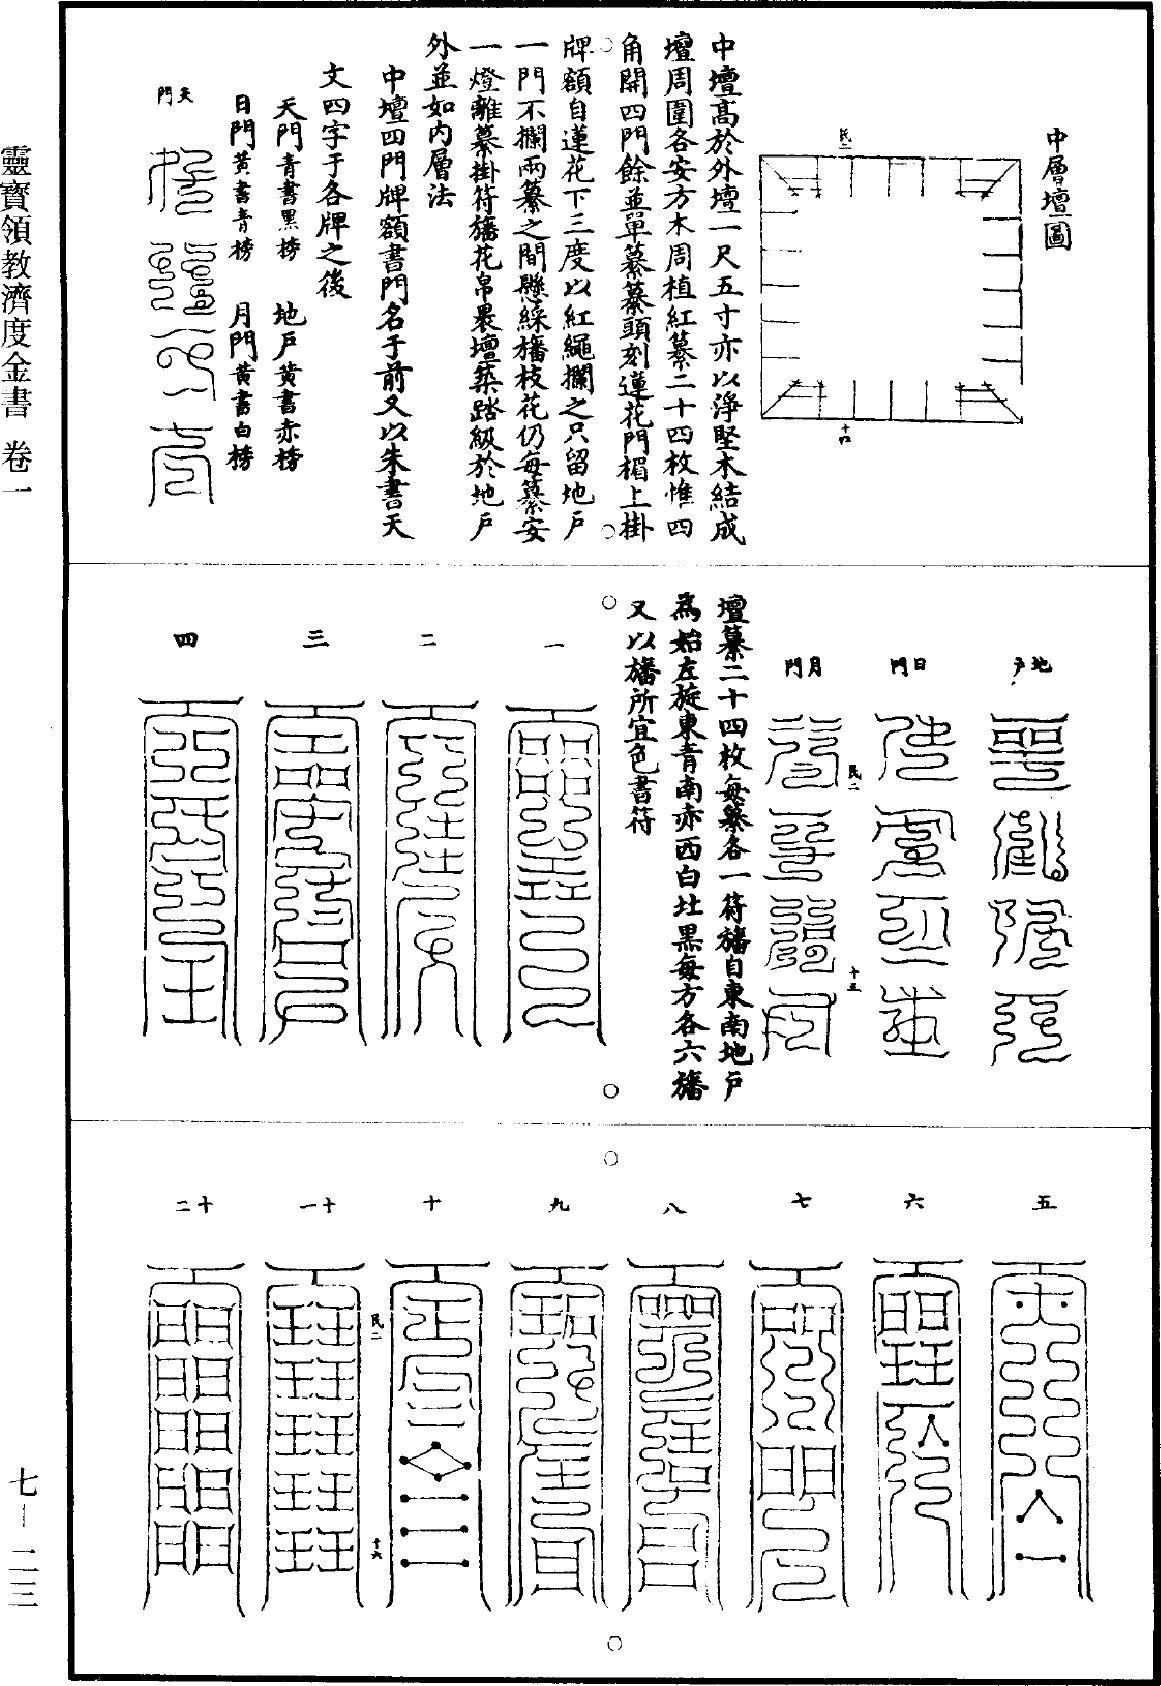 靈寶領教濟度金書 卷一
七—二三
中層壇圖
民二
十四
中壇高於外壇一尺五寸亦以淨堅木結成
壇周圍各安方木周植紅纂二十四枚惟四
角開四門餘並單纂纂頭刻蓮花門楣上掛
牌額自蓮花下三度以紅繩攔之只留地戶
一門不攔兩纂之間懸綵旛枝花仍每纂安
一燈離纂掛符旛花帛褁壇築踏級於地戶
外並如內層法
中壇四門牌額書門名于前又以朱書天
文四字于各牌之後
天門青書黑榜 地戶黃書赤榜
日門黃書青榜 月門黃書白榜
天門
地戶
日門
月門
民二
十五
壇纂二十四枚每纂各一符旛自東南地戶
為始左旋東青南赤西白北黑每方各六旛
又以旛所宜色書符
一
二
三
四
五
六
七
八
九
十
民二
十六
十一
十二